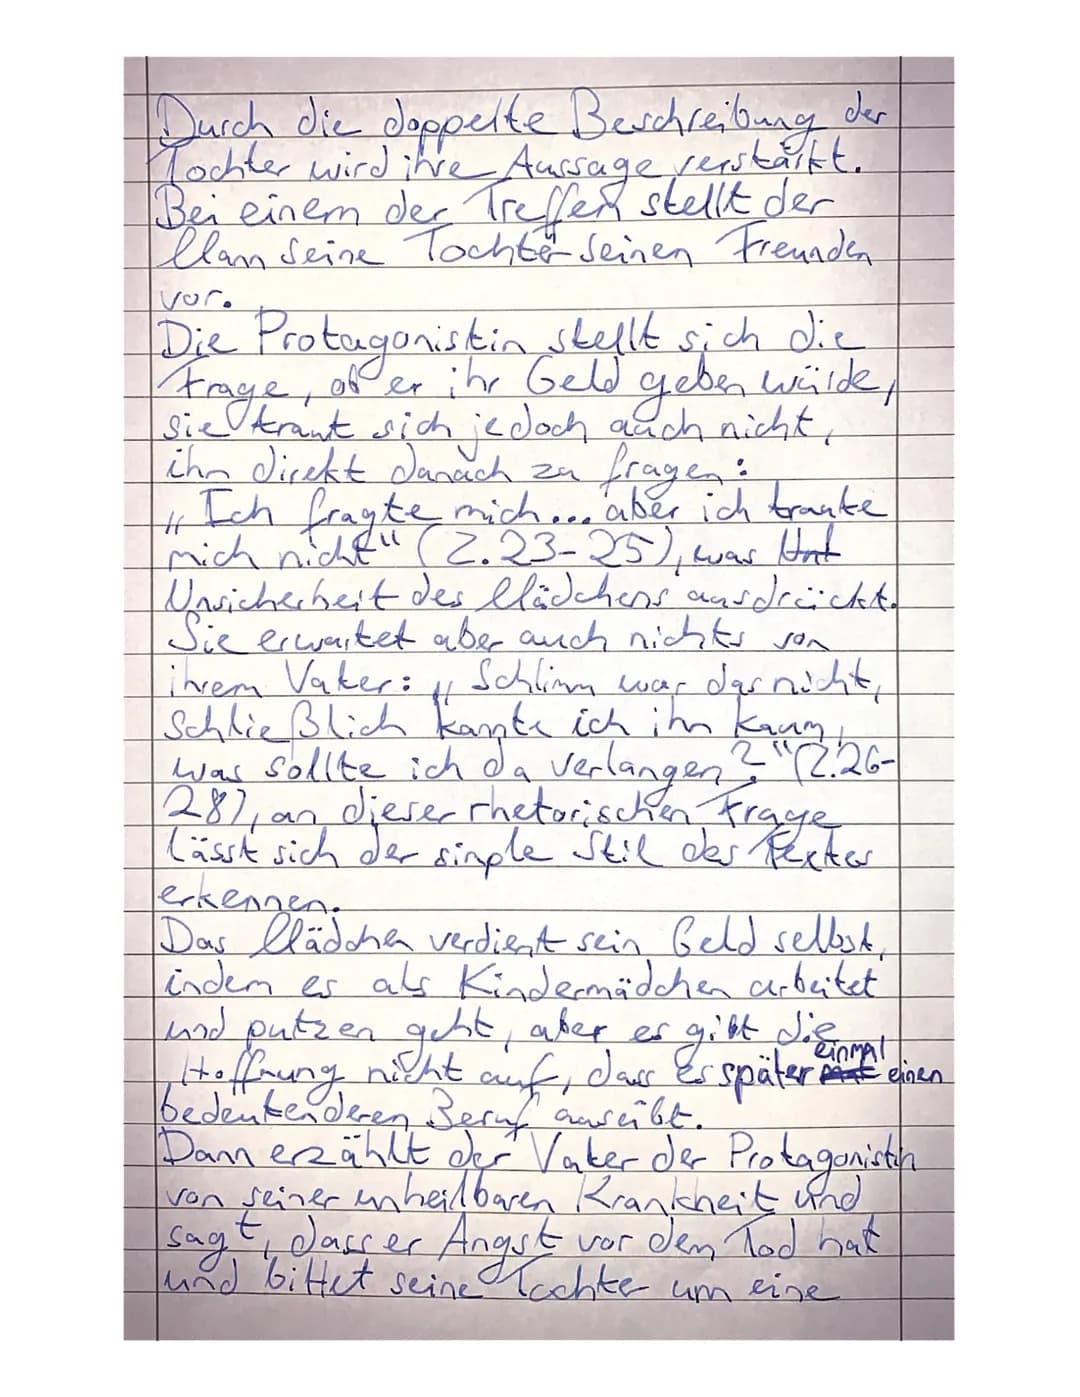 Durch die doppelte Beschreibung der
Tochter wird ihre Aussage verstärkt.
Bei einem der Treffen stellt der
Mann seine Tochter seinen Freunden
vor.
Die Protagonistin stellt sich die
Frage, ob er ihr Geld geben würde,
sie traut sich jedoch auch nicht,
ihn direkt danach zu fragen:
„Ich fragte mich... aber ich traute
mich nicht" (Z.23-25), was
Unsicherheit des Mädchens ausdrückt.
Sie erwartet aber auch nichts von
ihrem Vater: „Schlimm war das nicht,
schließlich kannte ich ihn kaum,
was sollte ich da verlangen?" (Z.26-
28), an dieser rhetorischen Frage
lässt sich der simple Stil des Textes
erkennen.
Das Mädchen verdient sein Geld selbst,
indem es als Kindermädchen arbeitet
und putzen geht, aber es gibt die
Hoffnung nicht auf, dass es später einmal einen
bedeutenderen Beruf ausübt.
Dann erzählt der Vater der Protagonistin
von seiner unheilbaren Krankheit und
sagt, dass er Angst vor dem Tod hat
und bittet seine Tochter um eine